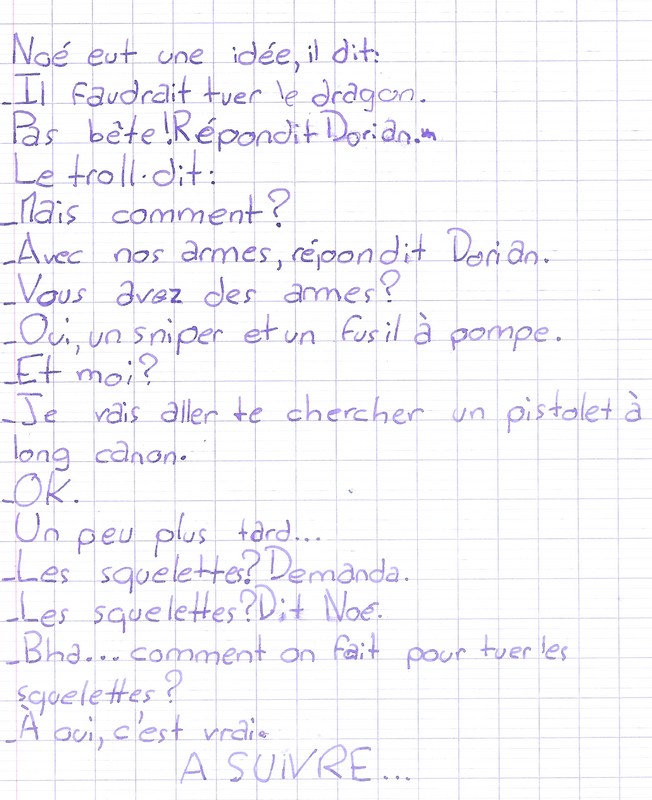 Noé eut une idée, il dit:
_Il faudrait tuer le dragon.
Pas bête! Répondit Dorian.
Le troll dit:
_Mais comment?
_Avec nos armes, répondit Dorian.
_Vous avez des armes?
_Oui, un sniper et un fusil à pompe.
_Et moi?
_Je vais aller te chercher un pistolet à
long canon.
_OK.
Un peu plus tard...
_Les squelettes? Demanda.
_Les squelettes? Dit Noé.
_Bha... comment on fait pour tuer les
squelettes?
_À oui, c'est vrai.
A SUIVRE...